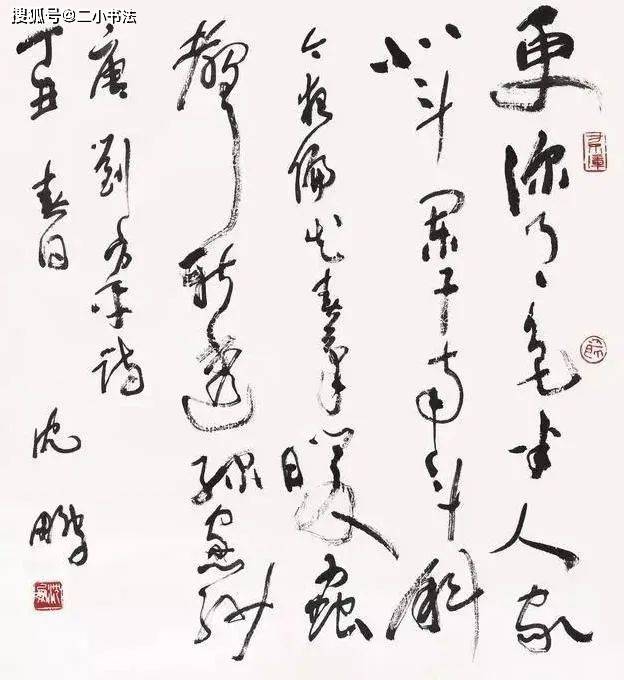 搜狐号@二小书法
更深月色半人家
北斗闌干南斗斜
今夜偏知春氣暖蟲
聲新透綠窗紗
唐劉方平詩
丁丑春日 沈鵬